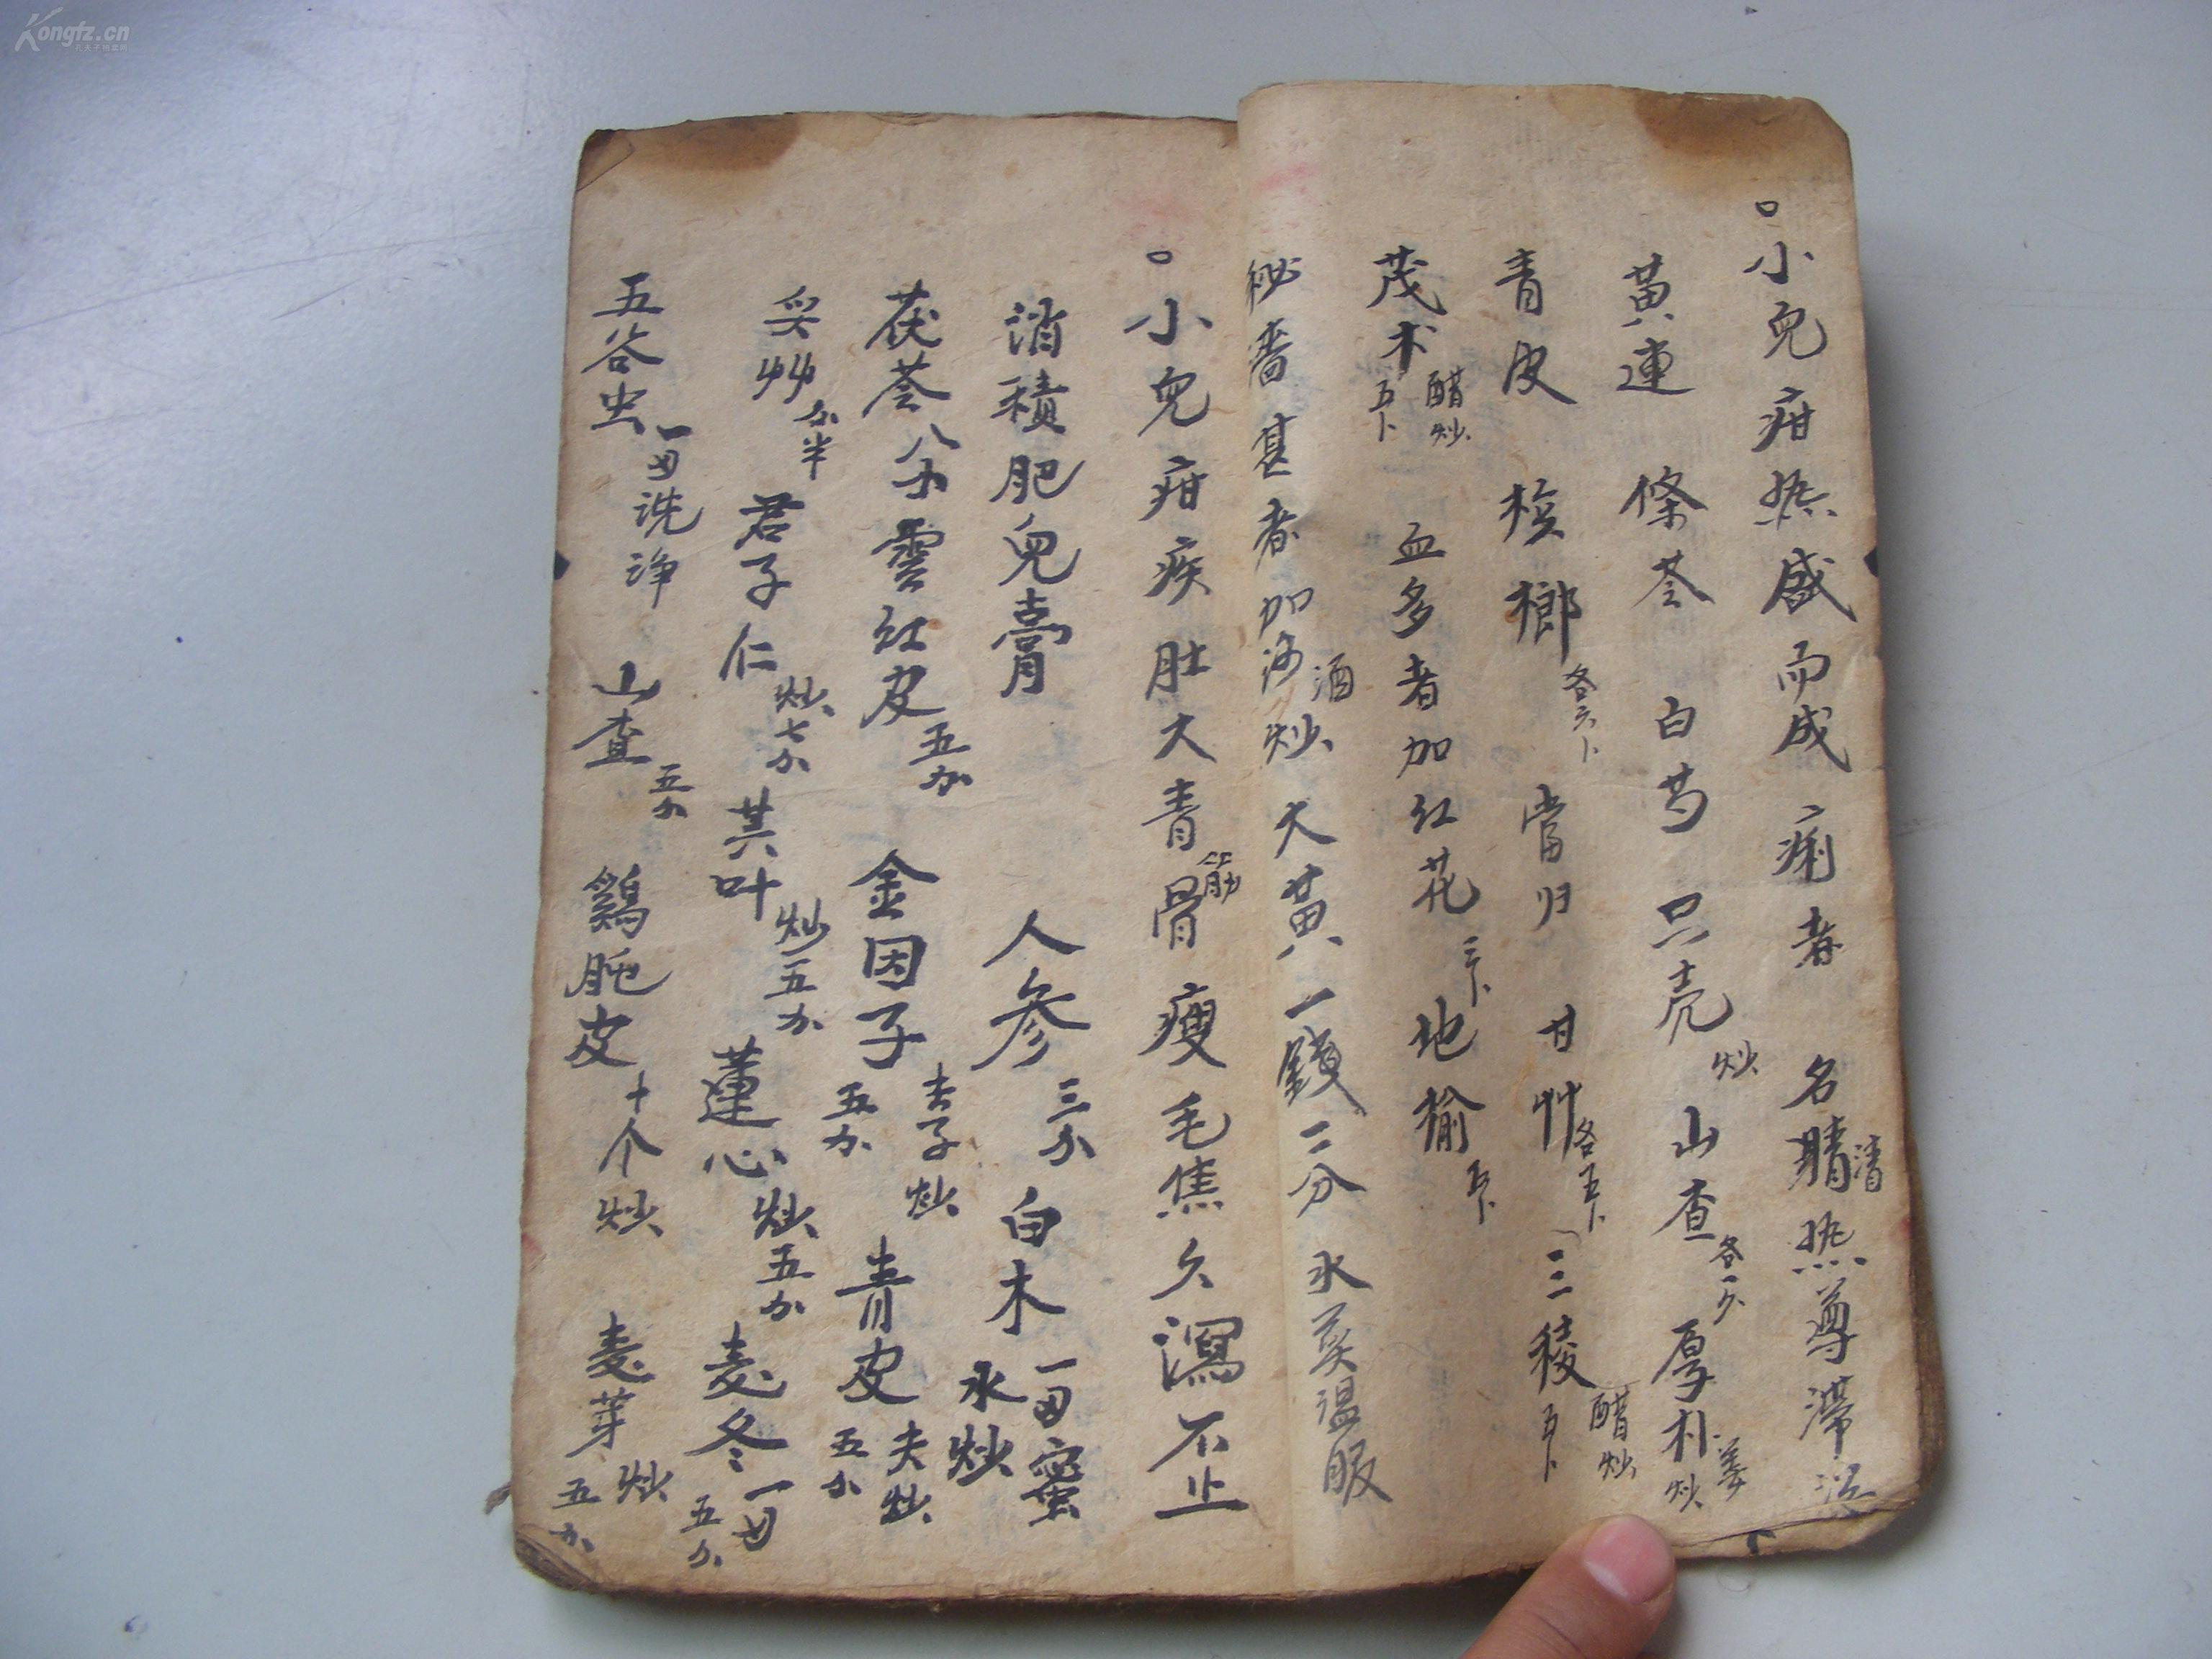 小兒疳热盛而成痢者 名腈清热導滞
黃連 條芩 白芍 只壳炒 山查各一分 厚朴姜炒
青皮 梹榔各六卜 當归 甘艸各五卜 三稜醋炒五卜
茂术醋炒五卜 血多者加红花三卜 地榆五卜
秘嗇甚者加酒炒大黃一錢二分 水煎温服
小兒疳疾肚大青筋骨瘦毛焦久瀉不止
消積肥兒膏 人參三分 白木一两蜜水炒
茯苓八分 雲红皮五分 金因子去子炒五分 青皮夫炒五分
艸分半 君子仁炒七分 叶炒五分 蓮心炒五分 麦冬一两五分
五谷虫一两洗净 山查五分 鷄肫皮十个炒 麦芽炒五分
Kongfz.cn